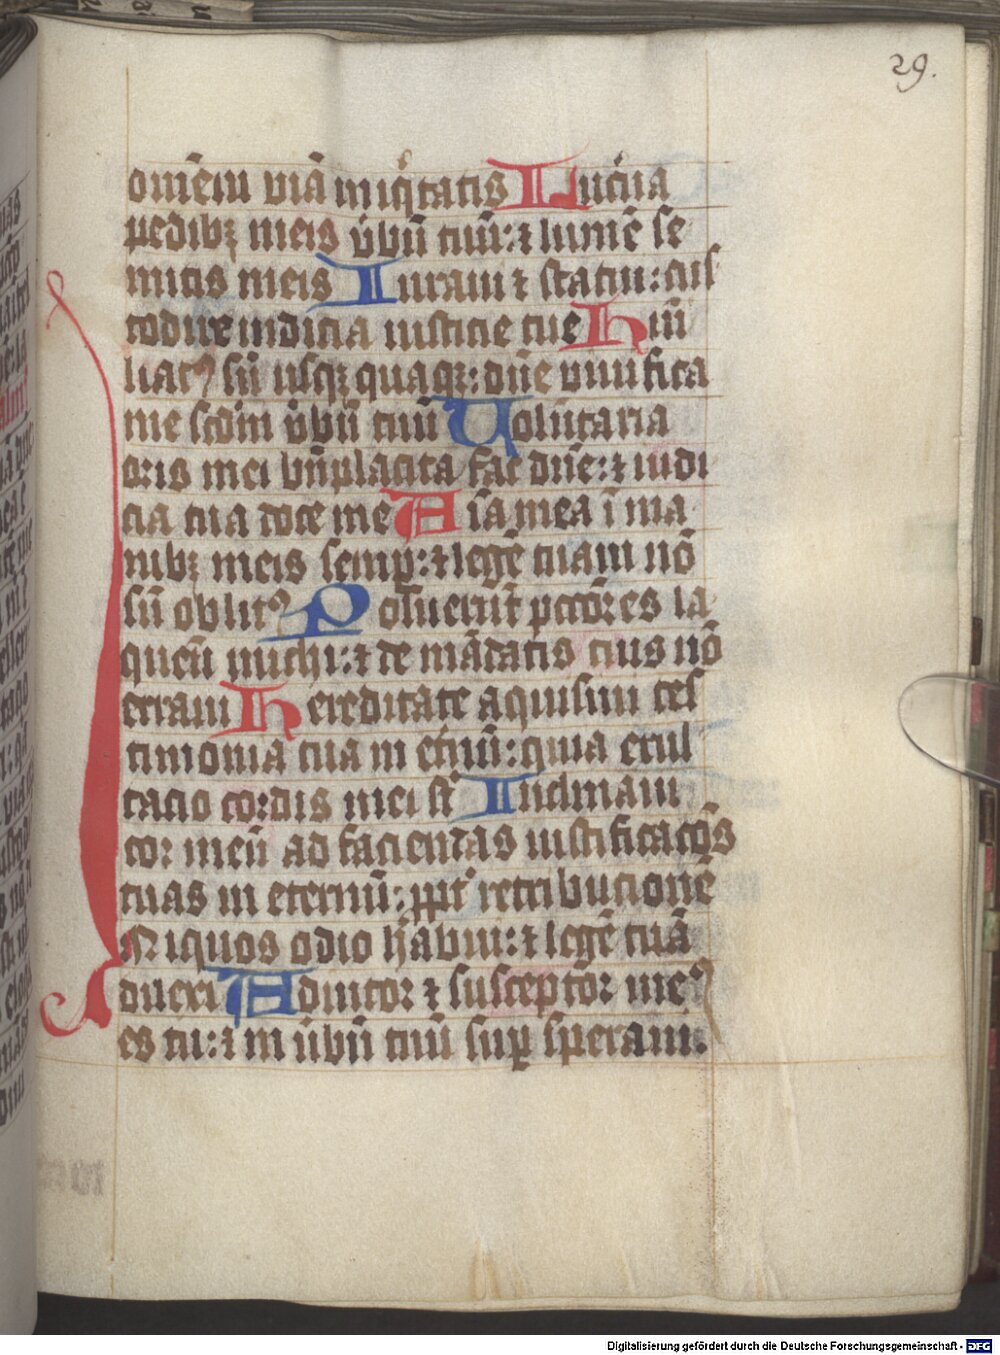 29.
om̄em viā iniq̄itatis Lucīna
pedibꝫ meis v̄bū tuū: ⁊ lumē se
mitis meis Iuraui ⁊ statui: cus
todire iudicia iusticie tue Hūi
liatꝰ sū usqꝫ quaqꝫ: dn̄e viuifica
me scdm̄ v̄bū tuū Volūtaria
oris mei bn̄placita fac dn̄e: ⁊ iudi
cia tua doce me Aīa mea ī ma
nibꝫ meis semp̲: ⁊ legē tuam nō
sū oblitꝰ Posuerūt pctōres la
queū michi: ⁊ de mādatis tuis nō
erraui Hereditate aquisiui tes
timonia tua in et̄nū: quia exul
tacio cordis mei st̄ Inclinaui
cor meū ad faciendas iustificacōs
tuas in eternū: ꝓpt̄ retribucionē
Iniquos odio habui: ⁊ legē tuā
dilexi Adiutor ⁊ susceptor meꝰ
es tu: ⁊ in v̄bū tuū sup̲ speraui.
Digitalisierung gefördert durch die Deutsche Forschungsgemeinschaft - DFG